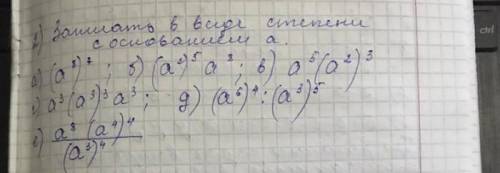 2) Записать в виде степени
с основанием a.
а) (a⁸)⁷; б) (a²)⁵ a⁸; в) a⁵(a²)³
г) a³(a³)³a³; д) (a⁶)⁴:(a³)⁵
е) a⁸(a⁴)⁴/(a³)⁴
ctrl